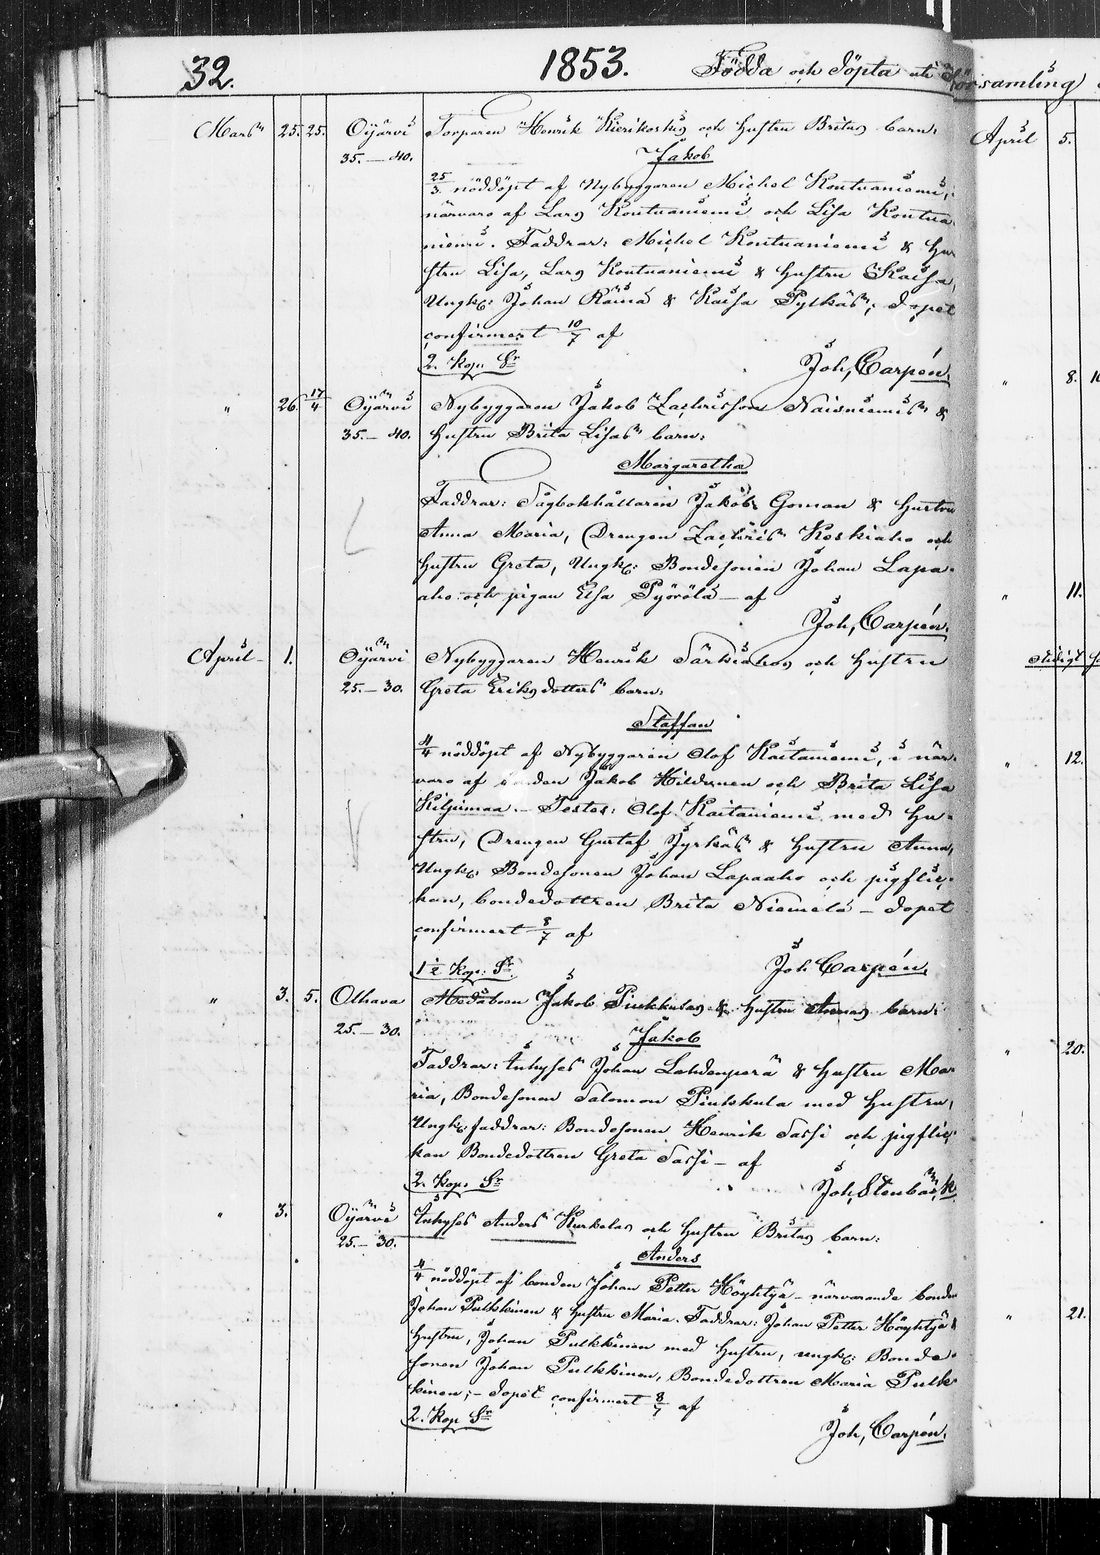 32. 1853. Födda och döpta uti Församling
Mars 25. 25. Oijärvi Torparen Henrik Kierikoskis och hustru Britas barn:
35.–40. Jakob
25/3 nöddöpt af Nybyggaren Michel Kontuaniemi, i
närvaro af Lars Kontuaniemi och Lisa Kontua-
niemi. Faddrar: Michel Kontuaniemi & Hu-
stru Lisa, Lars Kontuaniemi & hustru Kaisa,
Ungk: Johan Rämä & Kaisa Pylkäs; dopet
confirmert 10/7 af
2. Kop: Sr Joh, Carpén.
" 26. 17/4 Oijärvi Nybyggaren Jakob Zachrisson Naisniemis &
35.–40. hustru Brita Lisas barn:
Margaretha
Faddrar: Sågbokhållaren Jakob Goman & Hustru
Anna Maria, Drengen Zachris Koskiaho och
hustru Greta, Ungk: Bondesonen Johan Lapa-
aho och pigan Elsa Pyörölä – af
Joh, Carpén.
April 1. Oijärvi Nybyggaren Henrik Särkiahos och hustru
25.–30. Greta Eriksdotters barn:
Staffan
4/4 nöddöpt af Nybyggaren Olof Kaitaniemi, i när-
varo af bonden Jakob Hildunen och Brita Lisa
Kilpimaa. – Testes: Olof Kaitaniemi med hu-
stru, Drengen Gustaf Jyrkäs & hustru Anna,
Ungk: Bondesonen Johan Lapaaho och pigflic-
kan, bondedottren Brita Niemelä – dopet
confirmert 8/7 af
1½ Kop: Sr. Joh Carpén,
" 3. 5. Olhava Jakob Piukkulas & hustru Annas barn:
25.–30. Jakob
Faddrar: Inhyses Johan Lahdenperä & hustru Ma-
ria, Bondesonen Salomon Piukkula med hustru,
Ungk: faddrar: Bondesonen Henrik Sassi och pigflic-
kan Bondedottren Greta Sassi – af
2. Kop: Sr Joh, Stenbäck
" 3. Oijärvi Inhyses Anders Kurkelas och hustru Britas barn:
25.–30. Anders
4/4 nöddöpt af bonden Johan Petter Höyhtyä – närvarande bonden
Johan Pulkkinen & hustru Maria. Faddrar: Johan Petter Höyhtyä &
hustru, Johan Pulkkinen med hustru, ungk: Bonde-
sonen Johan Pulkkinen, Bondedottren Maria Pulk-
kinen; – dopet confirmert 8/7 af
2. Kop Sr Joh, Carpén.
April 5.
" 8.
" 11.
" 12.
" 20.
" 21.